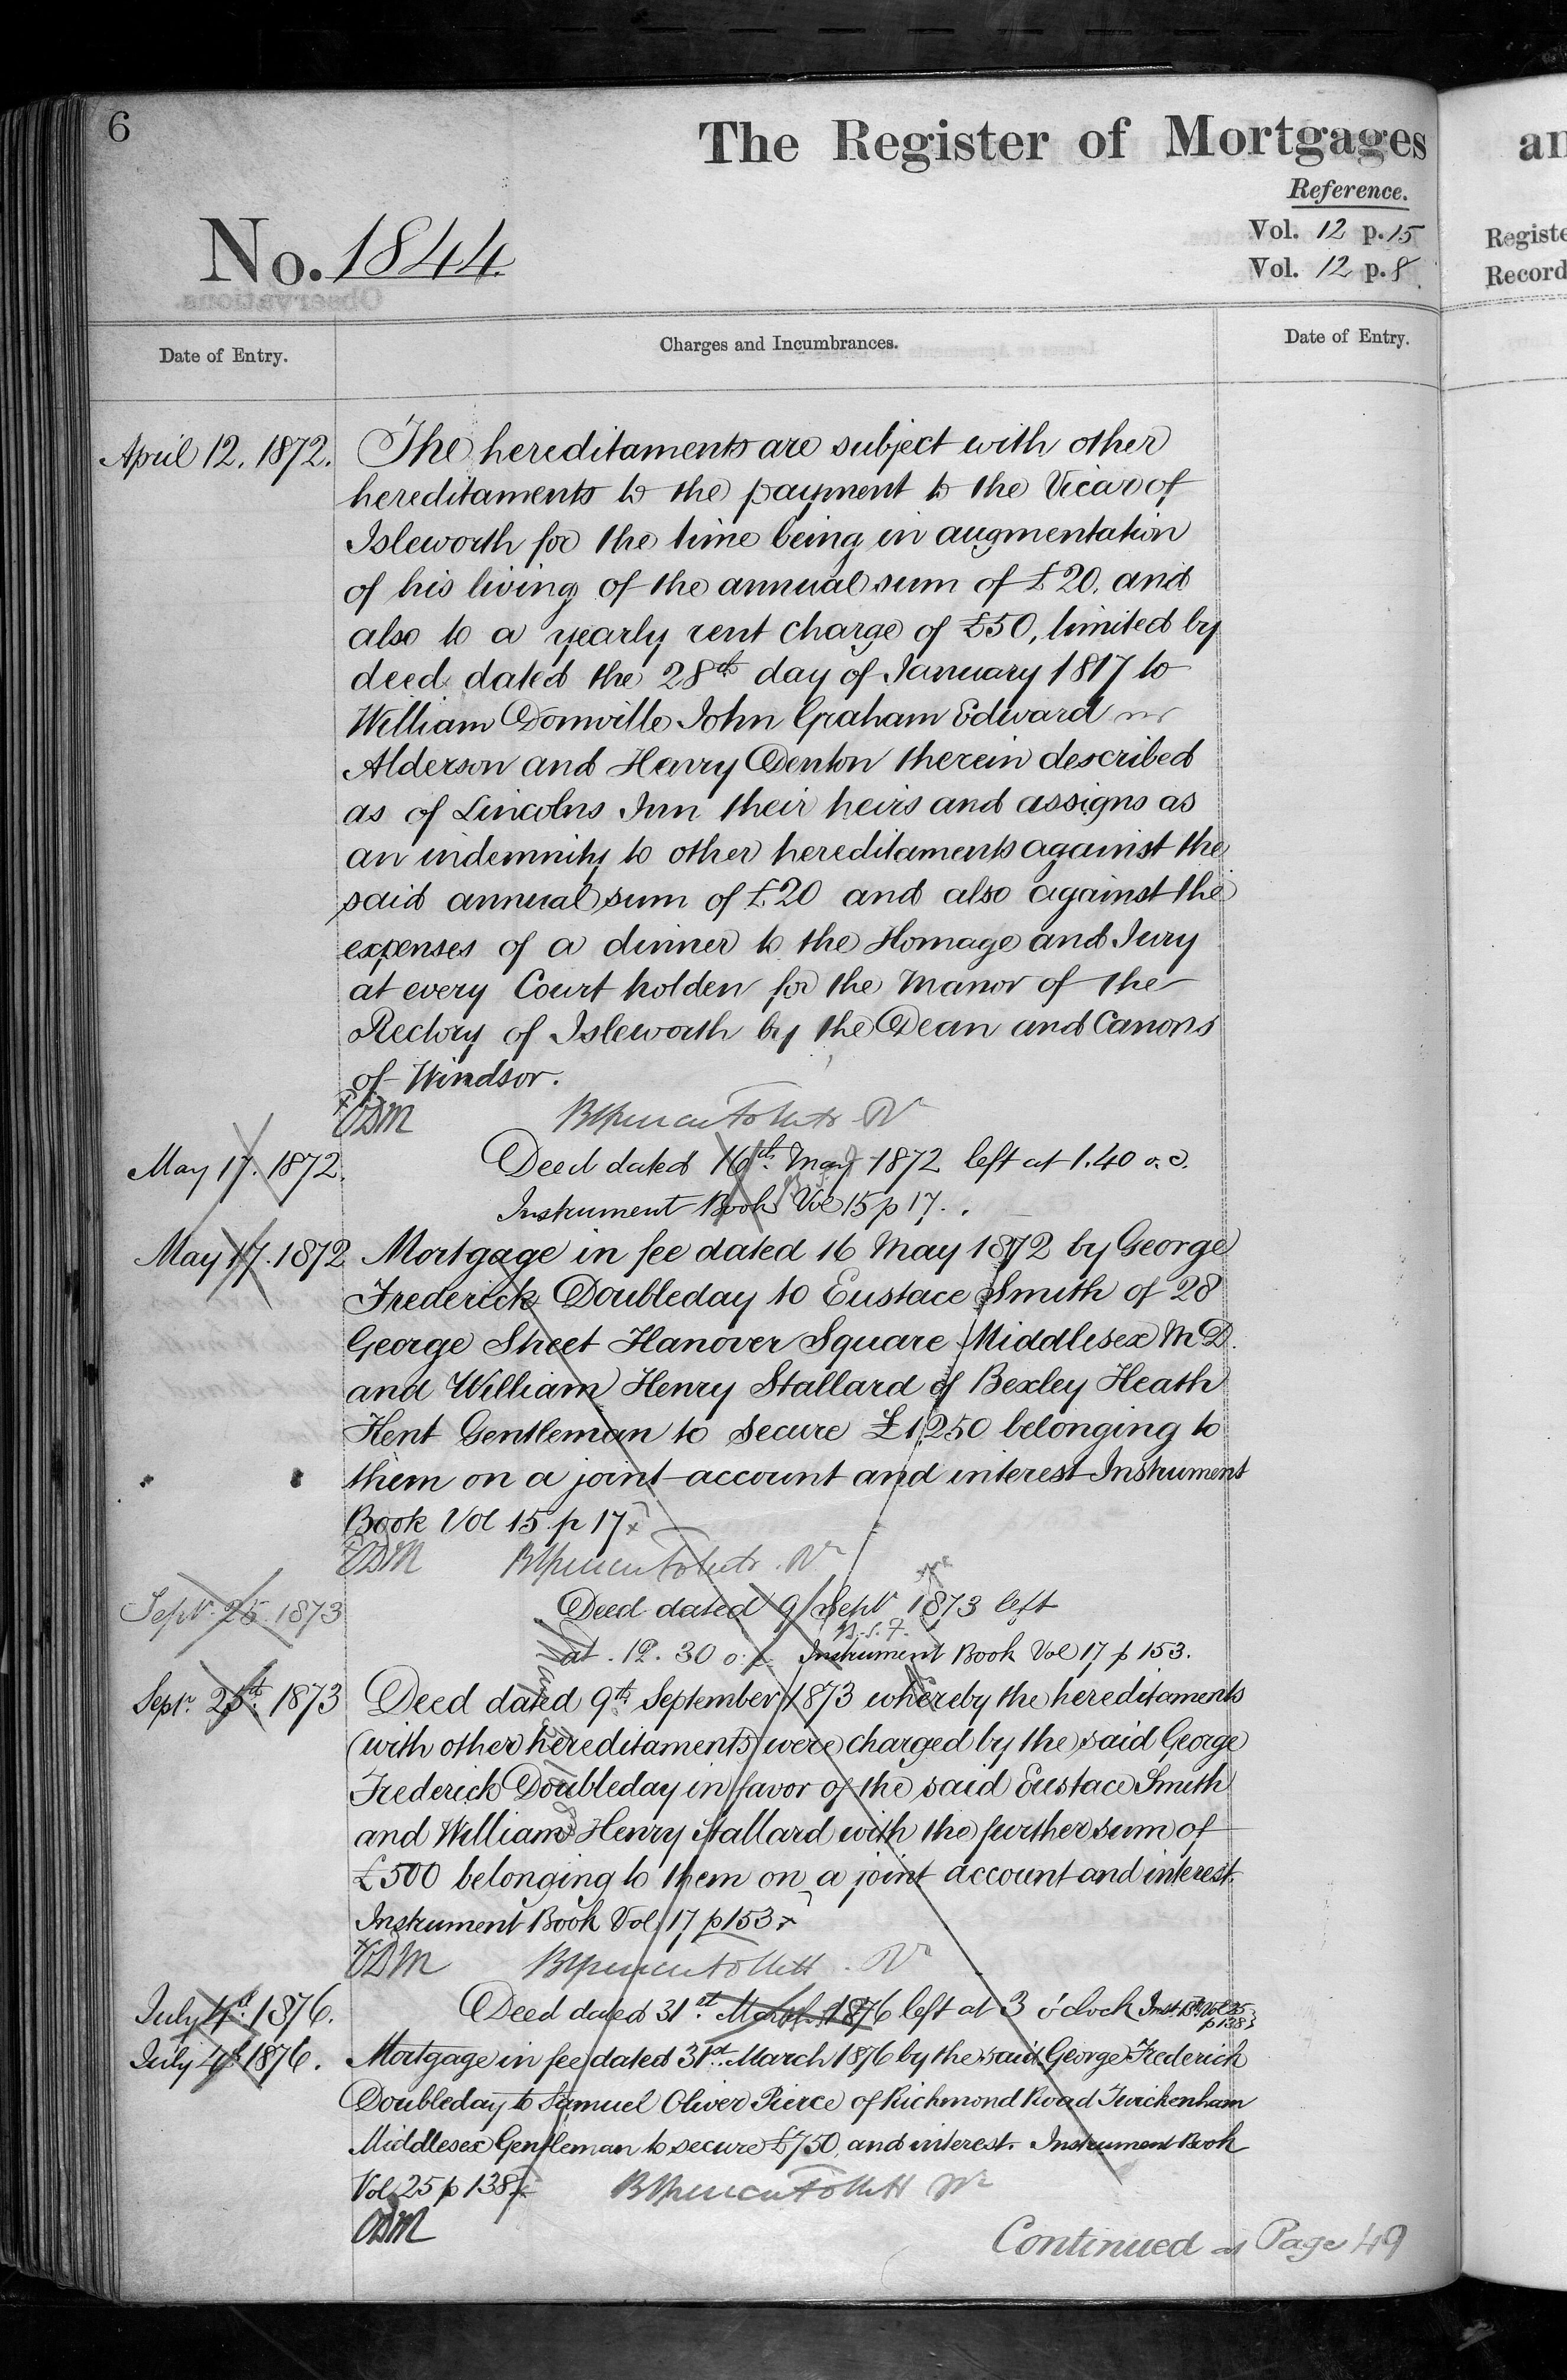 6
The Register of Mortgages
Reference.
No. 1844
Vol. 12 p. 15
Vol. 12 p. 8
Date of Entry.
Charges and Incumbrances.
Date of Entry.
April 12. 1872.
The hereditaments are subject with other
hereditaments to the payment to the Vicar of
Isleworth for the time being in augmentation
of his living of the annual sum of £20. and
also to a yearly rent charge of £50, limited by
deed dated the 28th day of January 1817 to
William Domville John Graham Edward
Alderson and Henry Denton therein described
as of Lincolns Inn their heirs and assigns as
an indemnity to other hereditaments against the
said annual sum of £20 and also against the
expenses of a dinner to the Homage and Jury
at every Court holden for the Manor of the
Rectory of Isleworth by the Dean and Canons
of Windsor.
May 17. 1872.
Deed dated 16th May 1872 left at 1.40 o.c.
Instrument Book Vol 15 p 17.
May 17. 1872
Mortgage in fee dated 16 May 1872 by George
Frederick Doubleday to Eustace Smith of 28
George Street Hanover Square Middlesex M D.
and William Henry Stallard of Bexley Heath
Kent Gentleman to secure £1,250 belonging to
them on a joint account and interest Instrument
Book Vol 15 p 17
Sepr. 25. 1873
Deed dated 9 Sepr 1873 left
at 12.30 o.c. Instrument Book Vol 17 p 153.
Septr. 25th 1873
Deed dated 9th September 1873 whereby the hereditaments
(with other hereditaments) were charged by the said George
Frederick Doubleday in favor of the said Eustace Smith
and William Henry Stallard with the further sum of
£500 belonging to them on a joint account and interest.
Instrument Book Vol. 17 p 153
July 4th 1876.
Deed dated 31st March 1876 left at 3 o'clock Inst. Bk Vol 25 p 138
July 4th 1876.
Mortgage in fee dated 31st March 1876 by the said George Frederick
Doubleday to Samuel Oliver Pierce of Richmond Road Twickenham
Middlesex Gentleman to secure £750 and interest. Instrument Book
Vol 25 p 138
Continued at Page 49
an
Registe
Record